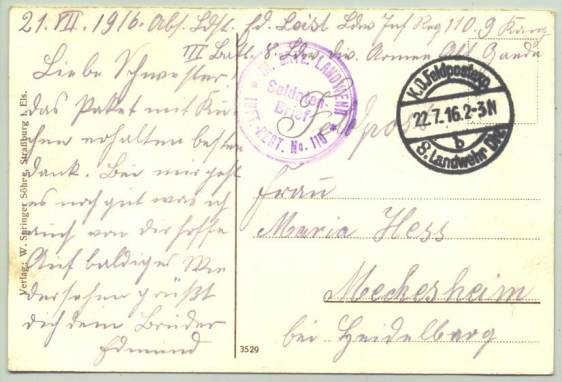 21. VII. 1916. Abs. Ldst. Ed. Leist Ldw Inf Reg 110. 9 Komp
III Batl. 8. Ldw. div. Armee Abt. Gaede
Liebe Schwester
das Paket mit Ku
chen erhalten besten
dank. Bei mir geht
es noch gut was ich
auch von dir hoffe
Auf baldiges Wie
dersehen grüßt
dich dein Bruder
Edmund
III. BATL. LANDWEHR
Soldaten-
Brief
INFT.-REGT. No. 110
Feldpost
K.D. Feldpostexp.
22.7.16.2-3N
b
8. Landwehr Div.
Frau
Maria Hess
Meckesheim
bei Heidelberg
Verlag: W. Springer Söhne, Straßburg i. Els.
3529